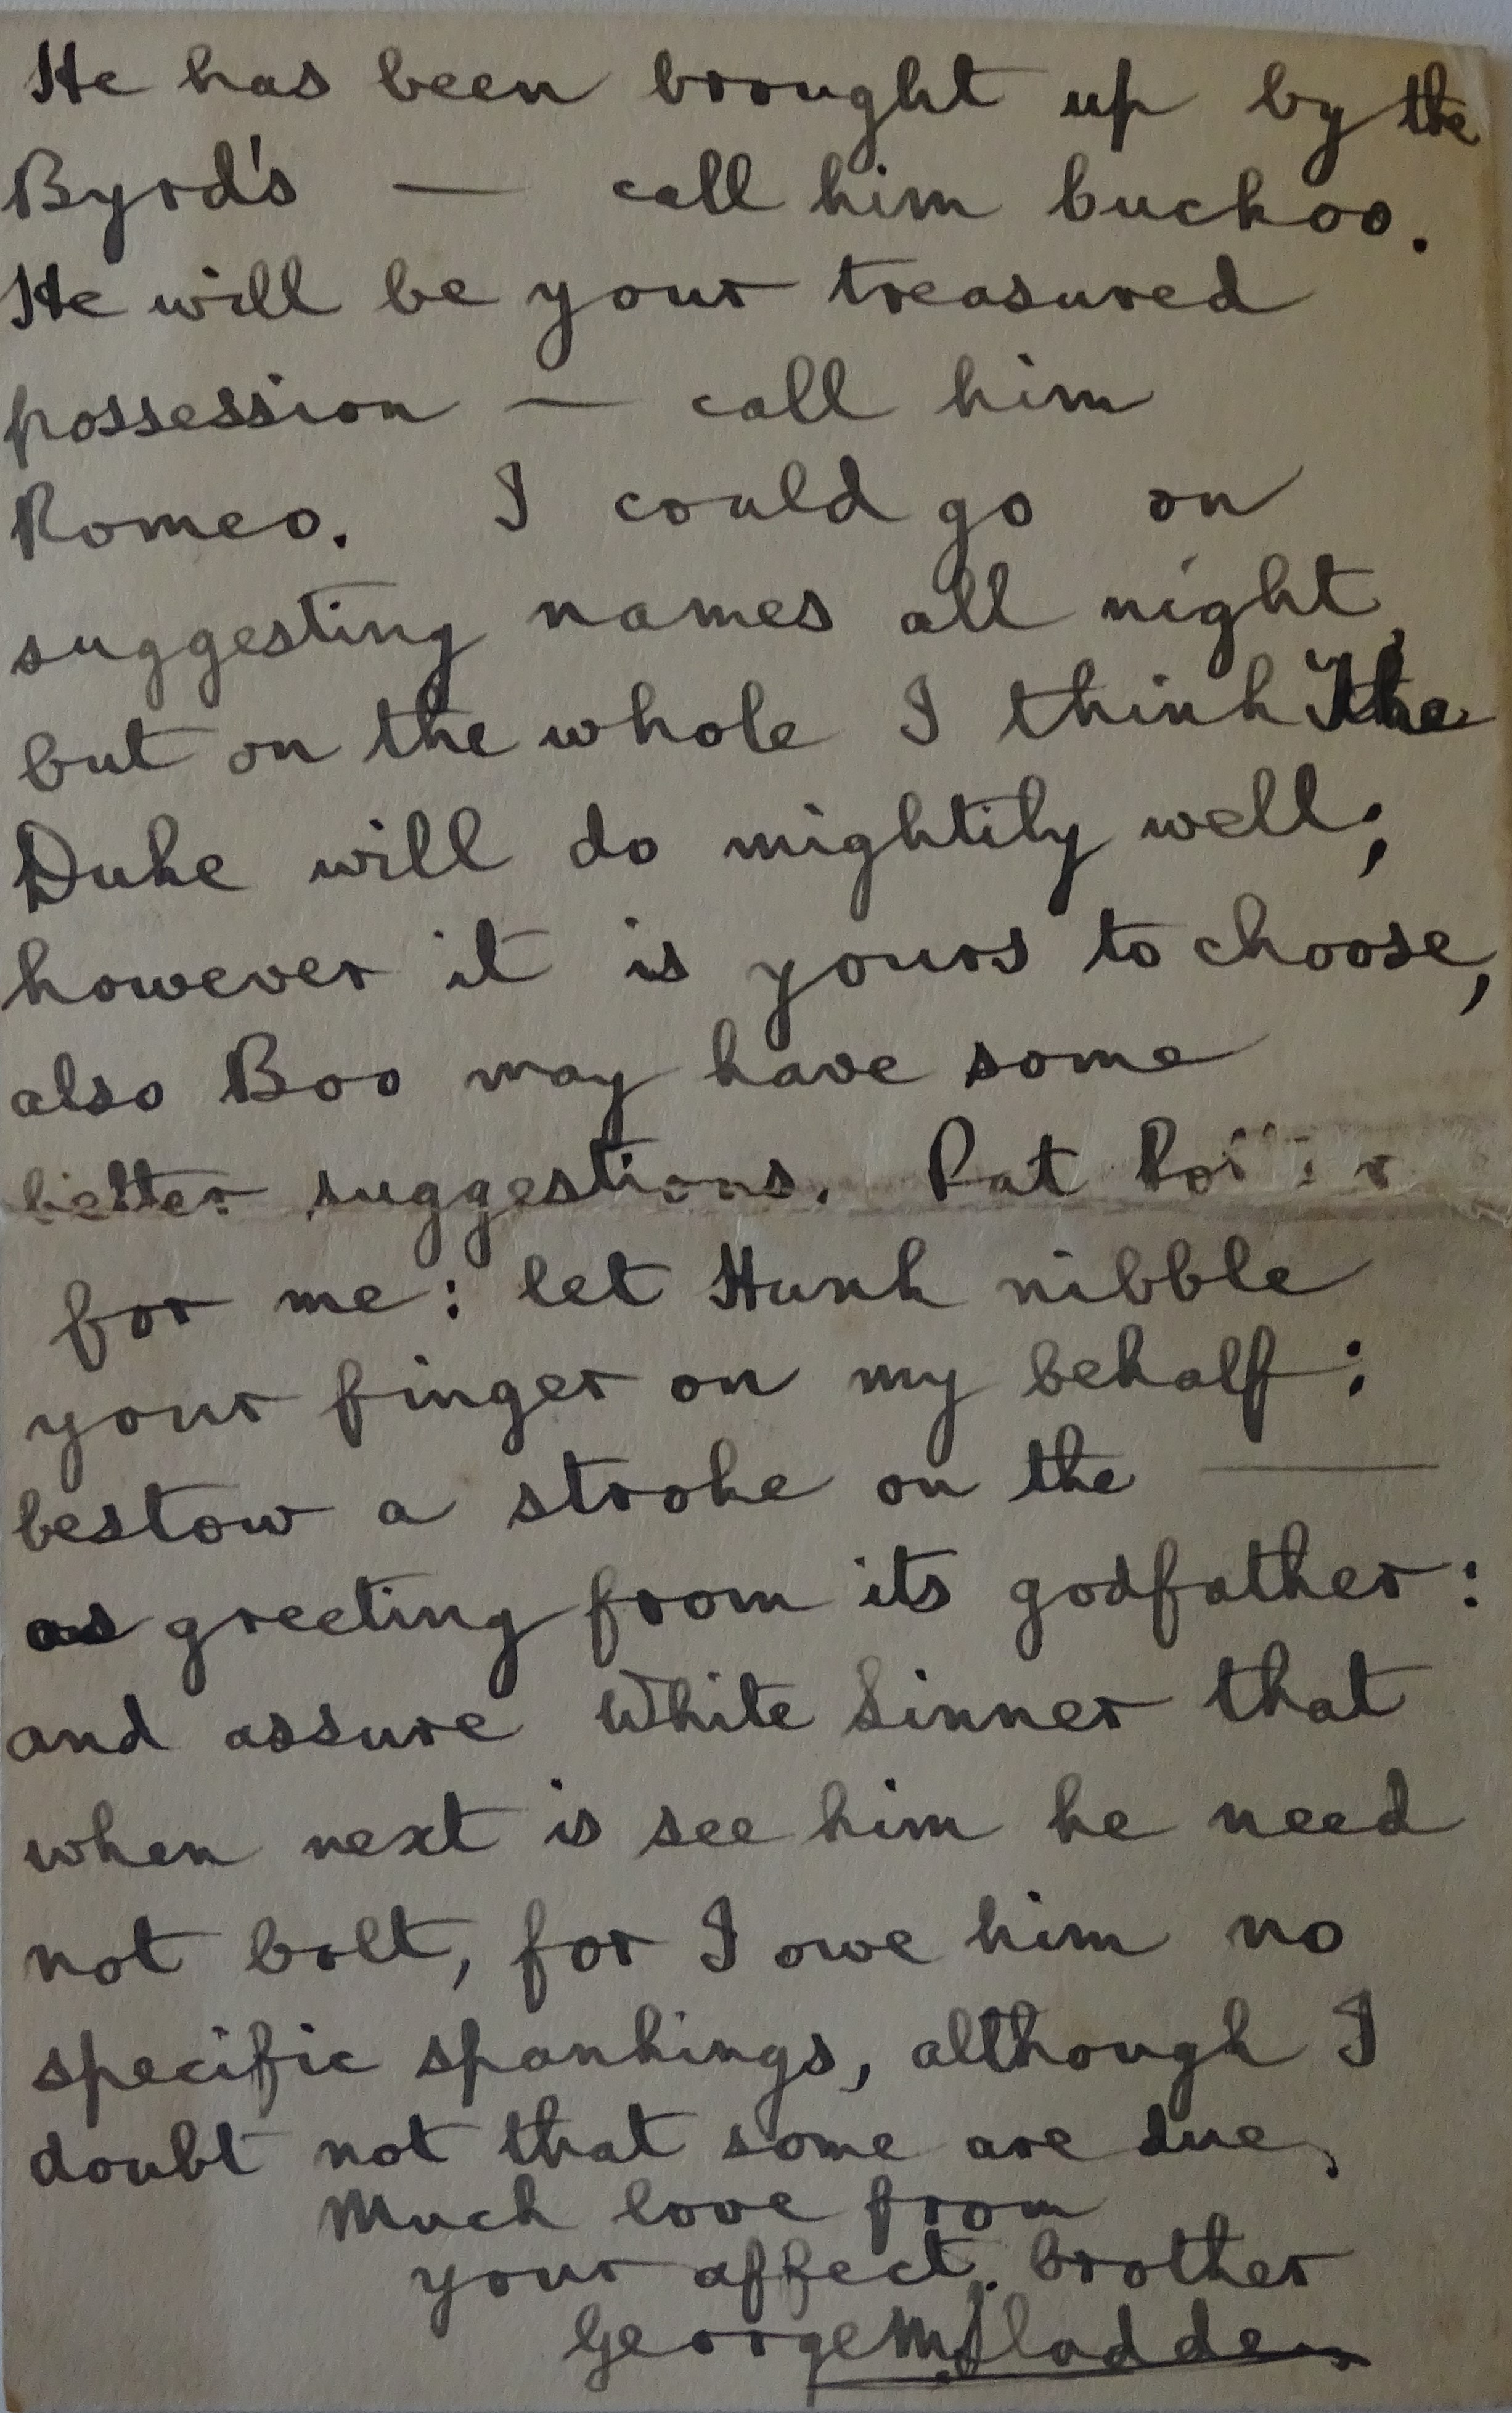 He has been brought up by the
Byrd's — call him buckoo.
He will be your treasured
possession — call him
Romeo. I could go on
suggesting names all night,
but on the whole I think The
Duke will do mightily well;
however it is yours to choose,
also Boo may have some
better suggestions. Pat
for me: let Hunk nibble
your finger on my behalf:
bestow a stroke on the —
as greeting from its godfather:
and assure White Sinner that
when next is see him he need
not bolt, for I owe him no
specific spankings, although I
doubt not that some are due,
Much love from
your affect. brother
George M.